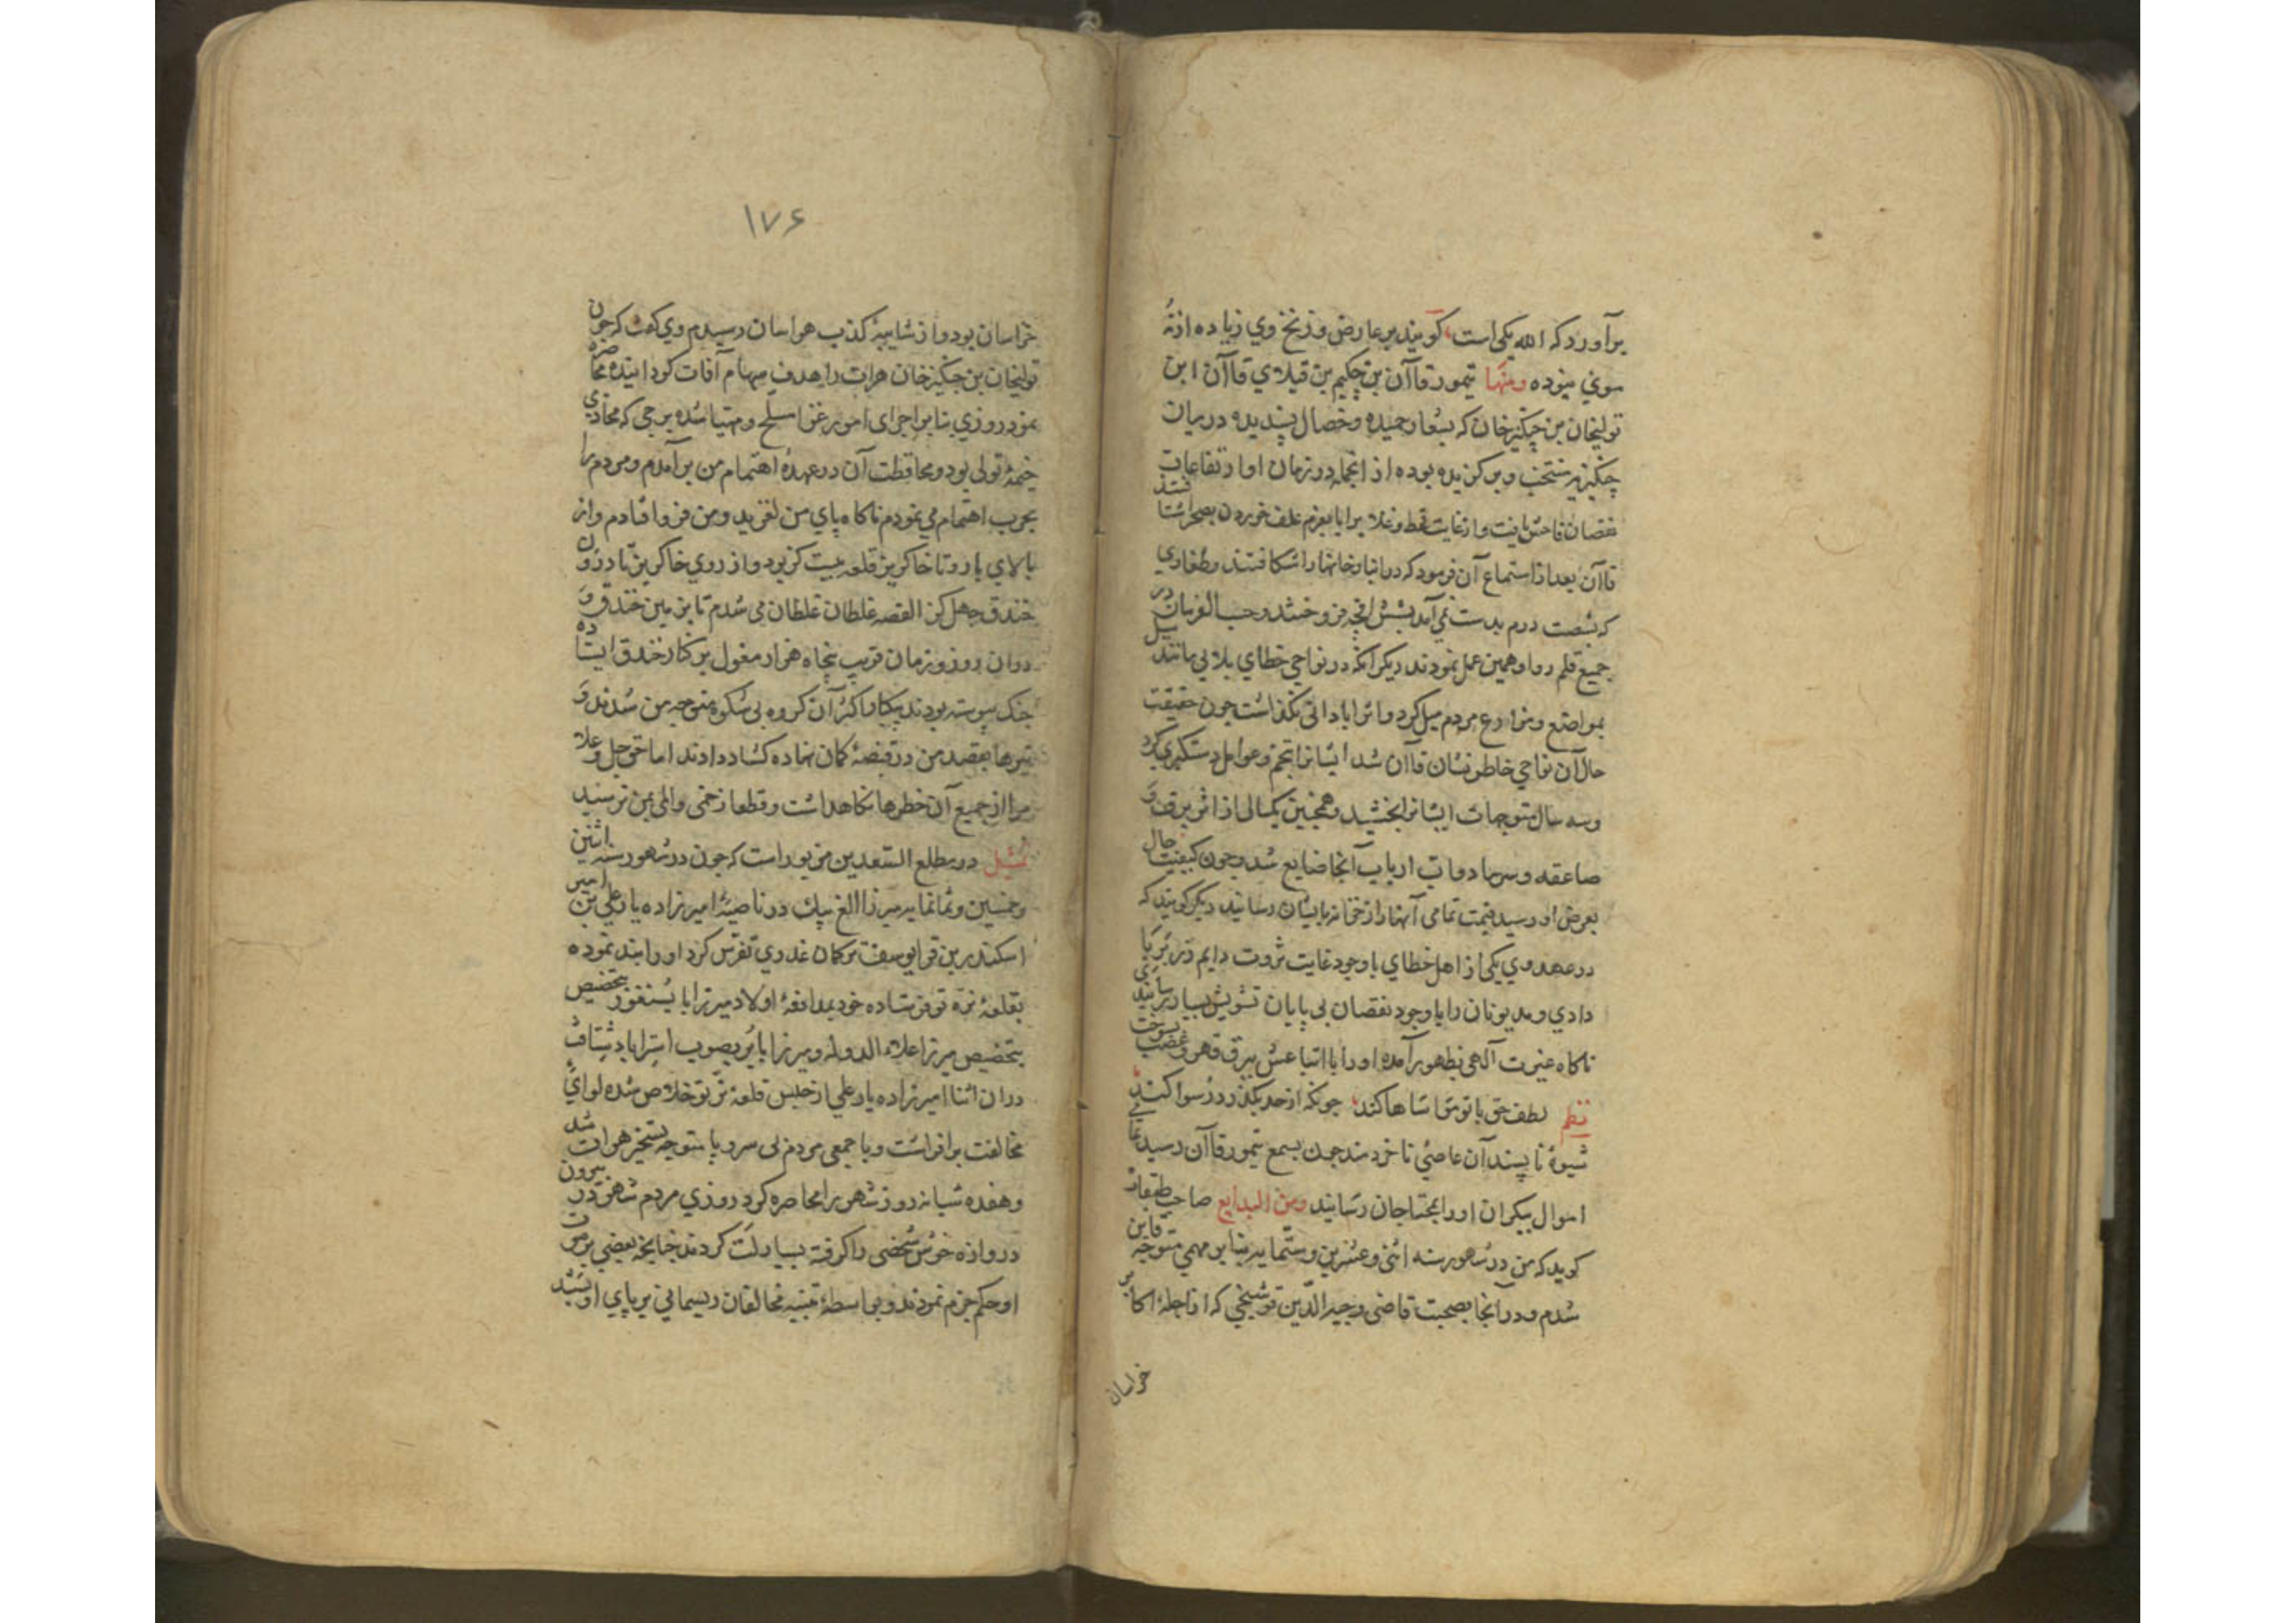 برآورد که الله یکی است، کویند بر عارض و زنخ وی زیاده از نه
موی نبوده ومنها تیمور قاآن بن چکیم بن قیلای قاآن ابن
تولیخان بن چنکیزخان که بشعار حمیده و خصال پسندیده در میان
چنکیزیه منتخب و برکزیده بوده از انجمله در زمان او ارتفاعات
نقصان فاحش یافت و از غایت قحط و غلا برایا بعزم علف خوردن بصحرا شتافتند
قاآن بعد از استماع آن فرمود که در انبارخانها را شکافتند و طغاری
که بشصت درم بدست نمی آمد بشش اقچه فروختند و حسب الفرمان در
جمیع قلم رو او همین عمل نمودند دیکر آنکه در نواحی خطای بلائی مانند سیل
بمواضع و مزارع مردم میل کرد و اثر ابادانی نکذاشت چون حقیقت
حال آن نواحی خاطرنشان قاآن شد ایشانرا بتخم و عوامل دستکیری کرد
وسه سال متوجهات ایشانرا بخشید و همچنین یکسالی از اثر برق و
صاعقه و سرما دوماب ارباب آنجا ضایع شد و چون کیفیت حال
بعرض او رسید قیمت تمامی آنها را از خزانه بایشان رسانید دیکر کویند که
در عهد وی یکی از اهل خطای با وجود غایت ثروت دایم
دادی و مدیونان را با وجود نقصان بی پایان تشویش بسیار رسانیدی
ناکاه غیرت آلهی بظهور آمده او را با اتباعش ببرق قهر و غضب بسوخت
نظم لطف حق با تو مواساها کند، چونکه از حد بکذرد رسوا کند،
شیوهٔ ناپسند آن عاصی ناخردمند چون بسمع تیمور قاآن رسید
اموال بیکران او را بمحتاجان رسانید ومن البدایع صاحب طبقات
کوید که من در شهور سنه اثنی و عشرین و ستمایه بنابر مهمی متوجه قاین
شدم و در آنجا بصحبت قاضی وجیه الدین قوشنجی که از اجلهٔ اکابر
خراسان
۱۷۶
خراسان بود و از شایبهٔ کذب هراسان رسیدم وی کفت که چون
تولیخان بن چنکیزخان هرات را هدف سهام آفات کردانیده محاصره
نمود روزی بنابر اجرای امور غزا مسلح و مهیا شده برجی که محاذی
خیمهٔ تولی بود و محافظت آن در عهدهٔ اهتمام من برآمدم و مردم را
بحرب اهتمام می نمودم ناکاه پای من لغزید و من فرو افتادم و از
بالای بارو تا خاکریز قلعه بیست کز بود و از روی خاکریز تا درون
خندق چهل کز القصه غلطان غلطان می شدم تا بزمین خندق و
دران روز و زمان قریب پنجاه هزار مغول بر کنار خندق ایستاده
جنک پیوسته بودند یکبار اکثر آن کروه بی شکوه متوجه من شدند و
تیرها بقصد من در قبضهٔ کمان نهاده کشاد دادند اما حق جل و علا
مرا از جمیع آن خطرها نکاهداشت و قطعا زخمی و المی بمن نرسید
تمثیل در مطلع السعدین مزبور است که چون در شهور سنه اثنین
و خمسین و ثمانمایه میرزا الغ بیک در ناصیهٔ امیرزاده یار علی بن امیر
اسکندر بن قرایوسف ترکمان غدری تفرس کرد او را بند نموده
بقلعهٔ نره تو فرستاده خود بمدافعهٔ اولاد میرزا بایسنغر بتخصیص
بتخصیص میرزا علاء الدوله و میرزا بابر بصوب استراباد شتافت
دران اثنا امیرزاده یار علی از حبس قلعهٔ نره تو خلاص شده لوای
مخالفت برافراشت و با جمعی مردم بی سر و پا متوجه تسخیر هرات شد
و هفده شبانه روز شهر را محاصره کرد روزی مردم شهر در بیرون
دروازه خوش شخصی را کرفته بسیار لت کردند چنانچه بعضی بر موت
او حکم جزم نمودند و بواسطهٔ تنبیه مخالفان ریسمانی بر پای او بستند